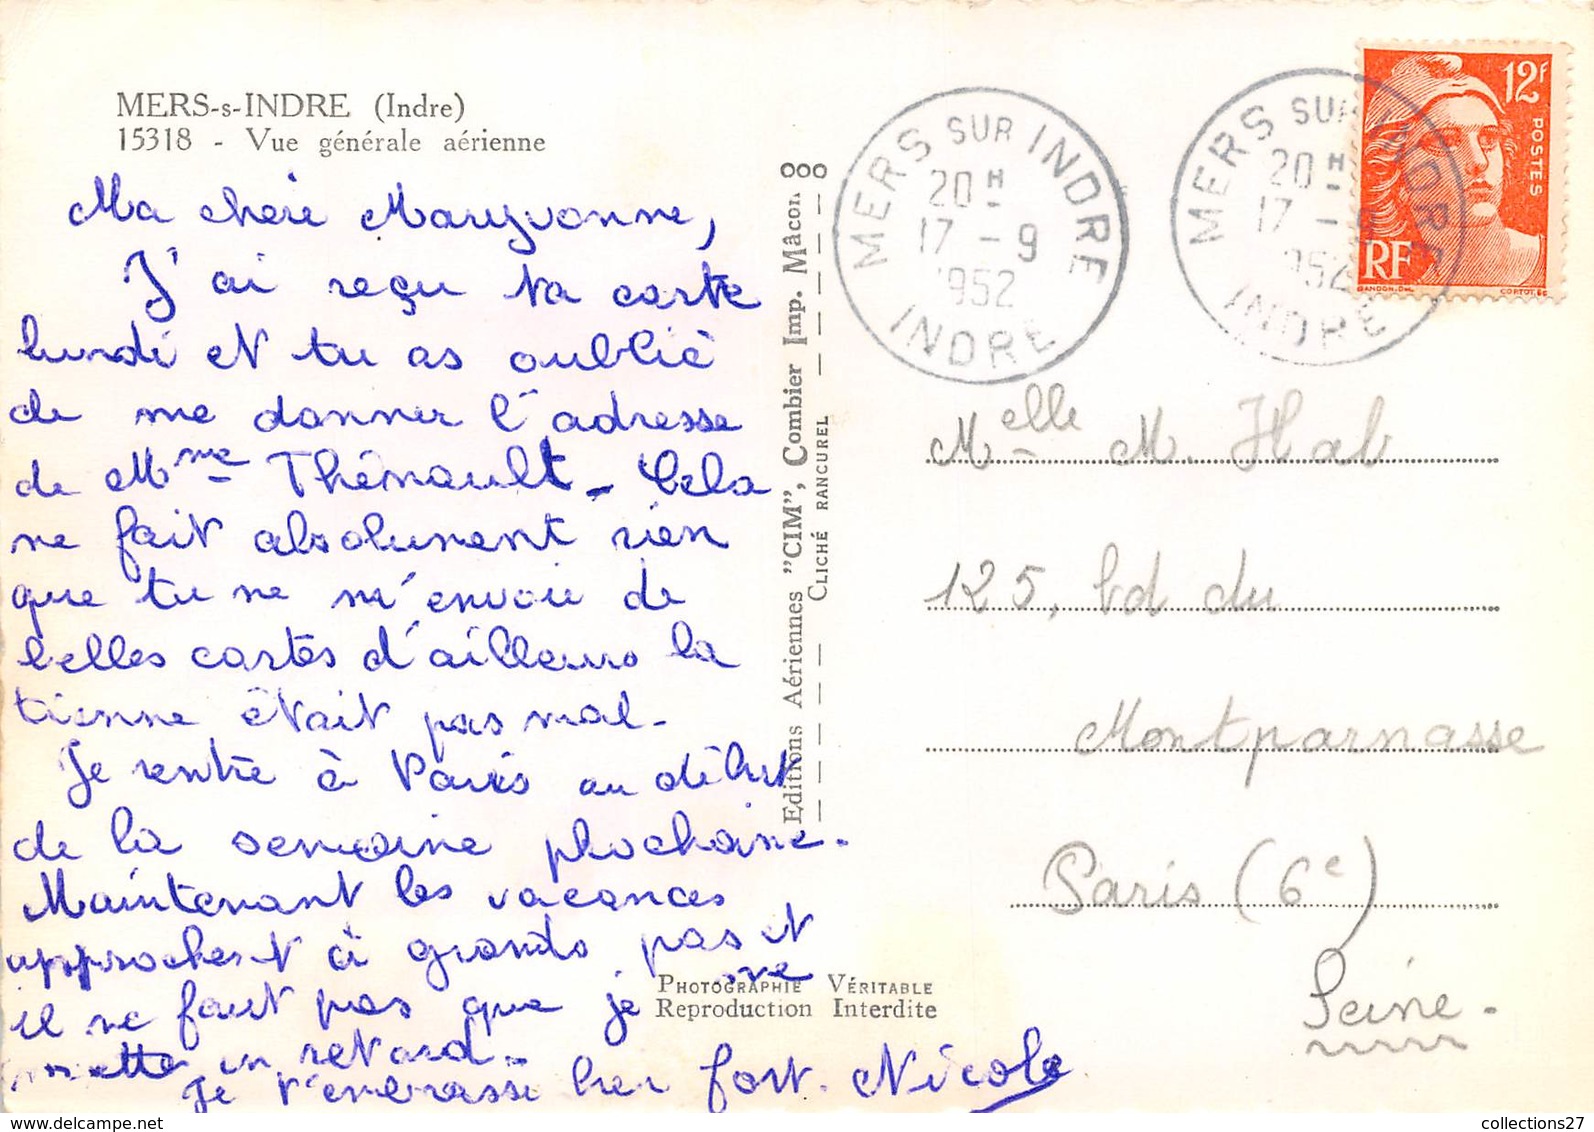 MERS-s-INDRE (Indre)
15318 - Vue générale aérienne
Ma chère Maryvonne,
J'ai reçu ta carte
lundi et tu as oublié
de me donner l'adresse
de Mme Thénault - Cela
ne fait absolument rien
que tu ne m'envoie de
belles cartes d'ailleurs la
tienne était pas mal -
Je rentre à Paris au début
de la semaine prochaine.
Maintenant les vacances
approchent à grands pas et
il ne faut pas que je me
mette en retard -
Je t'embrasse bien fort. Nicole
Editions Aériennes "CIM", Combier Imp. Mâcon
CLICHÉ RANCUREL
PHOTOGRAPHIE VÉRITABLE
Reproduction Interdite
MERS SUR INDRE
20 H
17 - 9
1952
INDRE
MERS SUR INDRE
20 H
17 - 9
1952
INDRE
12F
POSTES
RF
GANDON.DEL
CORTOT.SC
Melle M. Hal
125, bd du
Montparnasse
Paris (6e)
Seine -
collections27